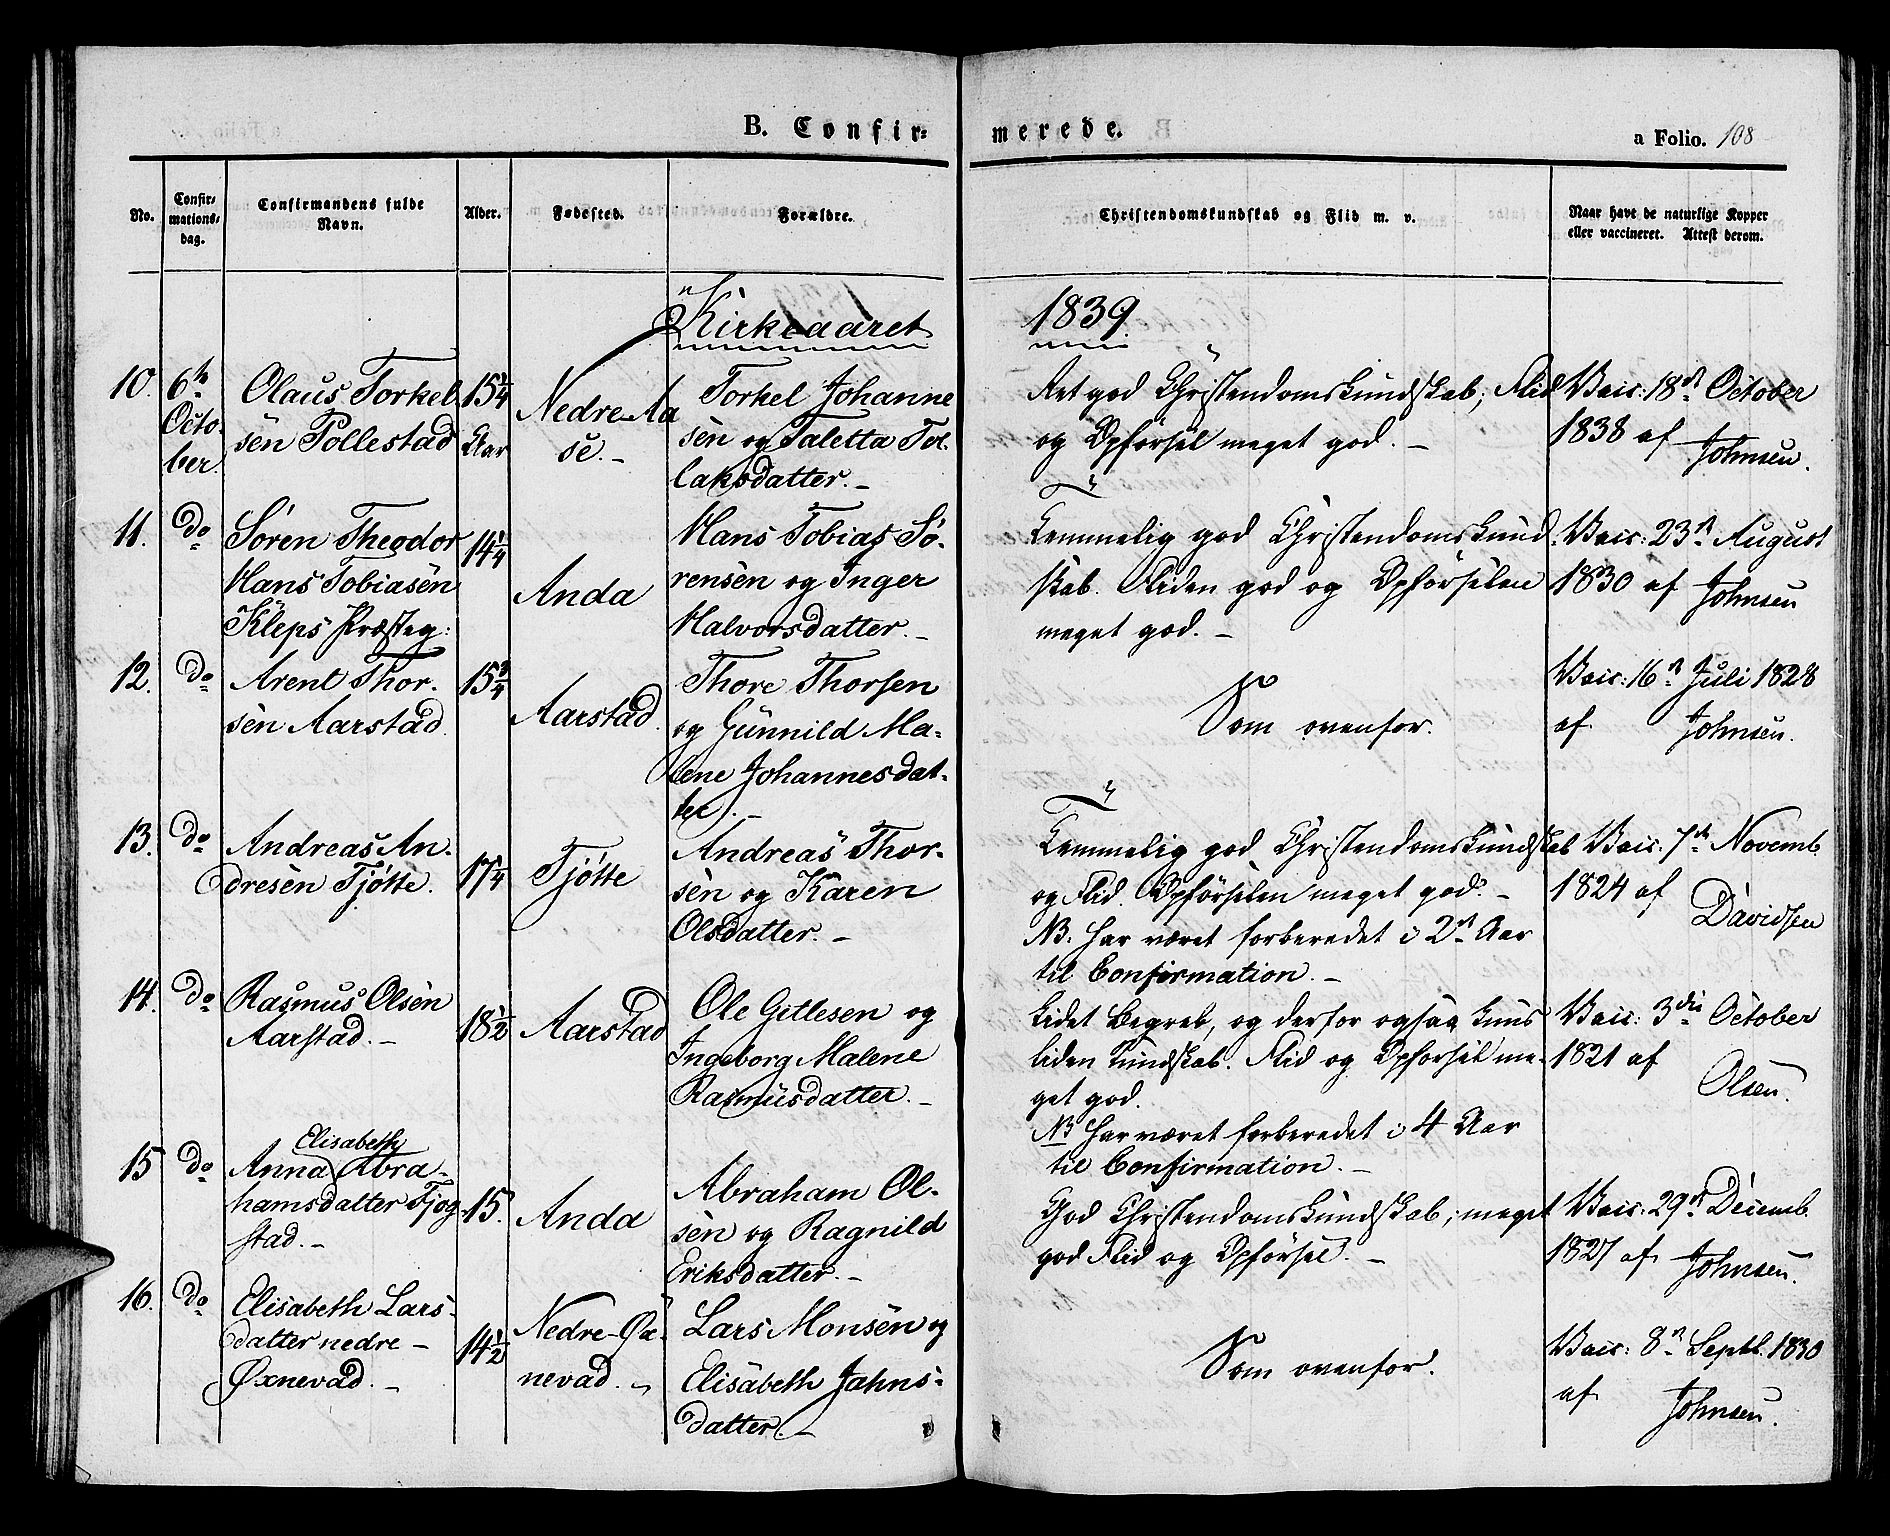 B. Confir=
merede.
a Folio. 108
No.
Confir=
mations=
dag.
Confirmandens fulde
Navn.
Alder.
Fødested.
Forældre.
Christendomskundskab og Flid m. v.
Naar havt de naturlige Kopper
eller vaccineret. Attest derom.
Kirkeaaret
1839.
10.
6te
Octo-
ber.
Olaus Torkel
sen Pollestad
15 1/4
Aar
Nedre-Aa
se. -
Torkel Johanne
sen og Taletta Tol-
laksdatter. -
Ret god Christendomskundskab; Flid
og Opførsel meget god. -
Vacc: 18de October
1838 af
Johnsen.
11.
do
Søren Theodor
Hans Tobiasen
Kleps Præsteg:
14 1/4
Anda
Hans Tobias Sø-
rensen og Inger
Halvorsdatter. -
Temmelig god Christendomskund-
skab. Fliden god og Opførselen
meget god. -
Vacc: 23de August
1830 af Johnsen
12.
do
Arent Thor-
sen Aarstad.
15 3/4
Aarstad.
Thore Thorsen
og Gunnild Ma-
lene Johannesdat-
ter. -
Som ovenfor.
Vacc: 16de Juli 1828
af Johnsen.
13.
do
Andreas An-
dresen Tjøtte.
17 1/4
Tjøtte
Andreas Thor-
sen og Karen
Olsdatter. -
Temmelig god Christendomskundskab
og Flid. Opførselen meget god. -
NB. Har været forberedet i 2de Aar
til Confirmation. -
Vacc: 7de Novemb.
1824 af
Davidsen
14.
do
Rasmus Olsen
Aarstad. -
18 1/2
Aarstad
Ole Gitlesen og
Ingeborg Malene
Rasmusdatter. -
Lidet Begreb, og derfor ogsaa kuns
liden Kundskab. Flid og Opførsel me-
get god.
NB Har været forberedet i 4 Aar
til Confirmation. -
Vacc: 3die October
1821 af
Olsen.
15
do
Elisabeth
Anna Abra-
hamsdatter Tjog-
stad. -
15.
Anda
Abraham Ol-
sen og Ragnild
Eriksdatter. -
God Christendomskundskab; meget
god Flid og Opførsel. -
Vacc: 29de Decemb.
1827 af Johnsen.
16.
do
Elisabeth Lars-
datter nedre -
Øxnevad. -
14 1/2
Nedre-Øx-
nevad. -
Lars Monsen og
Elisabeth Jahns-
datter. -
Som ovenfor.
Vacc: 8de Septb. 1830
af
Johnsen.